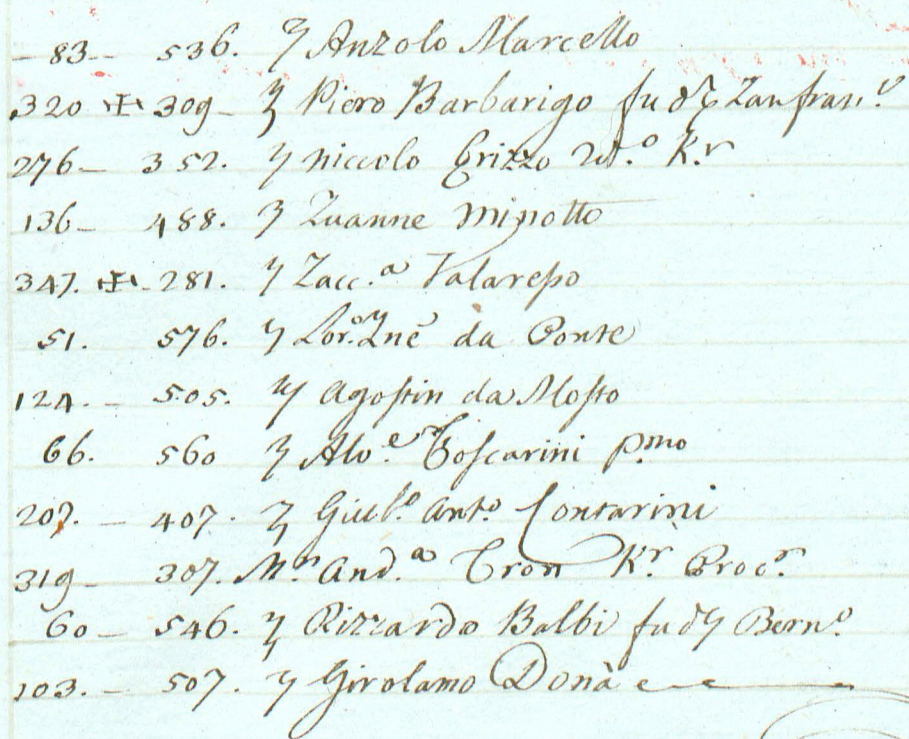 83 – 536. ỹ Anzolo Marcello
320 ✠ 309 – ỹ Piero Barbarigo fu de ỹ Zanfran.º
276 – 352. ỹ Niccolo Erizzo K.r
136 – 488. ỹ Zuanne Minotto
347. ✠ 281. ỹ Zacc.a Valaresso
51. 576. ỹ Lor.º Znē da Ponte
124. – 505. ỹ Agostin da Mosto
66. 560 ỹ Alv.e Foscarini p.mo
207. – 407. ỹ Giul.º Ant.º Contarini
319 – 307. M.r And.a Tron K.r Proc.r
60 – 546. ỹ Rizzardo Balbi fu de ỹ Bern.º
103. – 507. ỹ Girolamo Donà